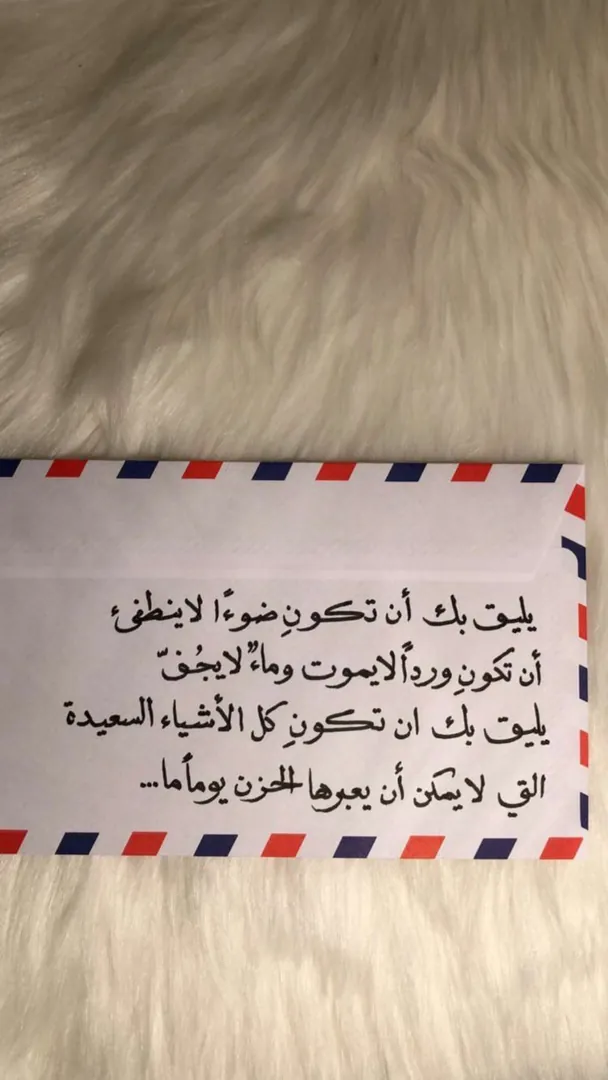 يليق بك أن تكونِ ضوءًا لاينطفئ
أن تكونِ ورداً لايموت وماءً لايجُفّ
يليق بك ان تكونِ كل الأشياء السعيدة
التي لايمكن أن يعبرها الحزن يوماً ما...